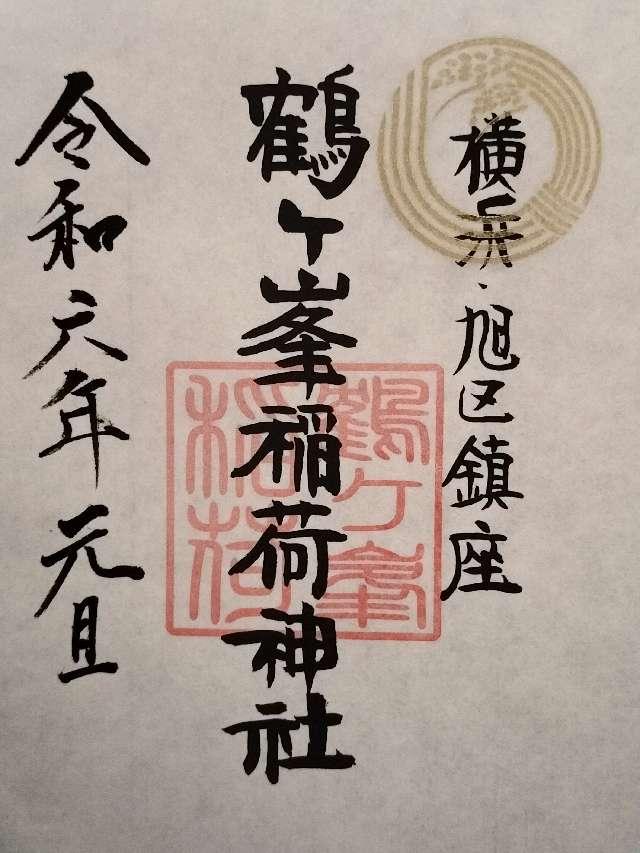 横浜・旭区鎮座
鶴ケ峯稲荷神社
鶴ケ峯
稲荷
令和六年元旦